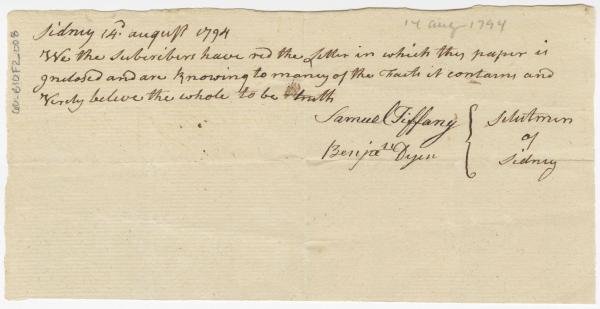 Sidney 14th. august 1794
14 aug 1794
We the Subscribers have red the Letter in which this paper is
Inclosed and are Knowing to maney of the Facts it contains and
Verely beleve the whole to be truth
Samuel Tiffany
Benjan Dyer
Selectmen
of
Sidney